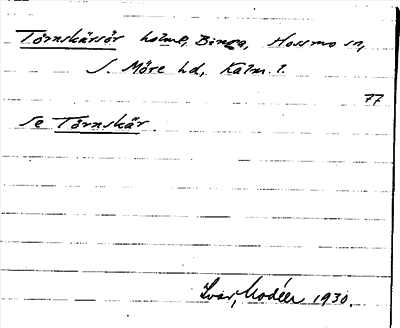 Törnskärsör holme, Binga, Hossmo sn,
S. Möre hd, Kalm. l.
77
Se Törnskär
Ivar Modéer 1930.